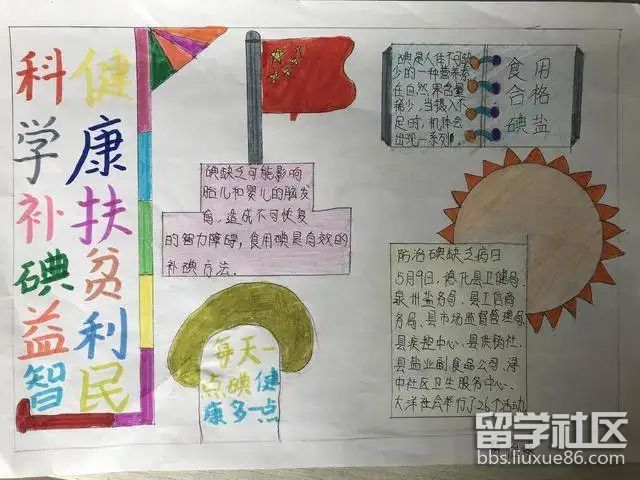 科学补碘益智
健康扶贫利民
碘是人体不可缺
少的一种营养素
在自然界含量
稀少,当摄入不
足时,机体会
出现一系列
食用
合格
碘盐
碘缺乏可能影响
胎儿和婴儿的脑发
育,造成不可恢复
的智力障碍,食用碘是有效的
补碘方法.
每天一
点碘健
康多一点
防治碘缺乏病日
5月9日,德化县卫健局、
泉州盐务局、县工信商
务局、县市场监督管理局、
县疾控中心、县供销社、
县盐业副食品公司、浔
中社区卫生服务中心、
大洋社会举行了 活动
留学社区
bbs.liuxue86.com